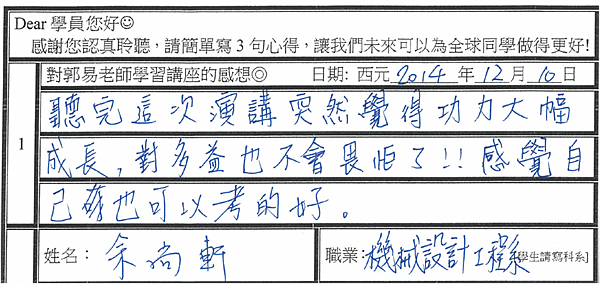 Dear 學員您好☺
感謝您認真聆聽，請簡單寫 3 句心得，讓我們未來可以為全球同學做得更好!
對郭易老師學習講座的感想◎ 日期: 西元 2014 年 12 月 10 日
1
聽完這次演講突然覺得功力大幅
成長，對多益也不會畏怕了!! 感覺自
己也可以考的好。
姓名： 余尚軒 職業： 機械設計工程系 [學生請寫科系]